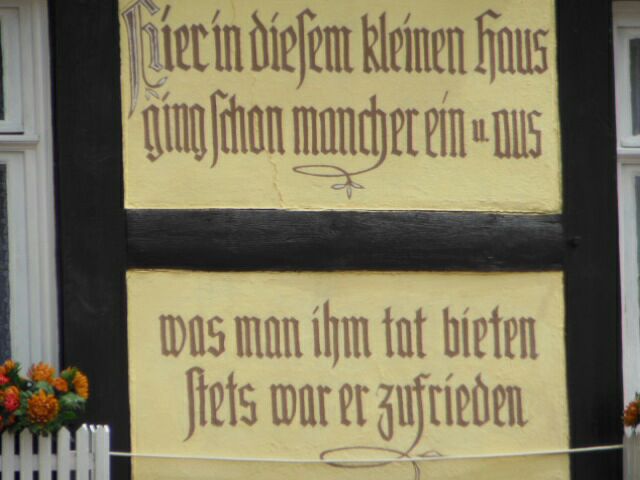 Hier in diesem kleinen Haus
ging schon mancher ein u. aus
was man ihm tat bieten
stets war er zufrieden